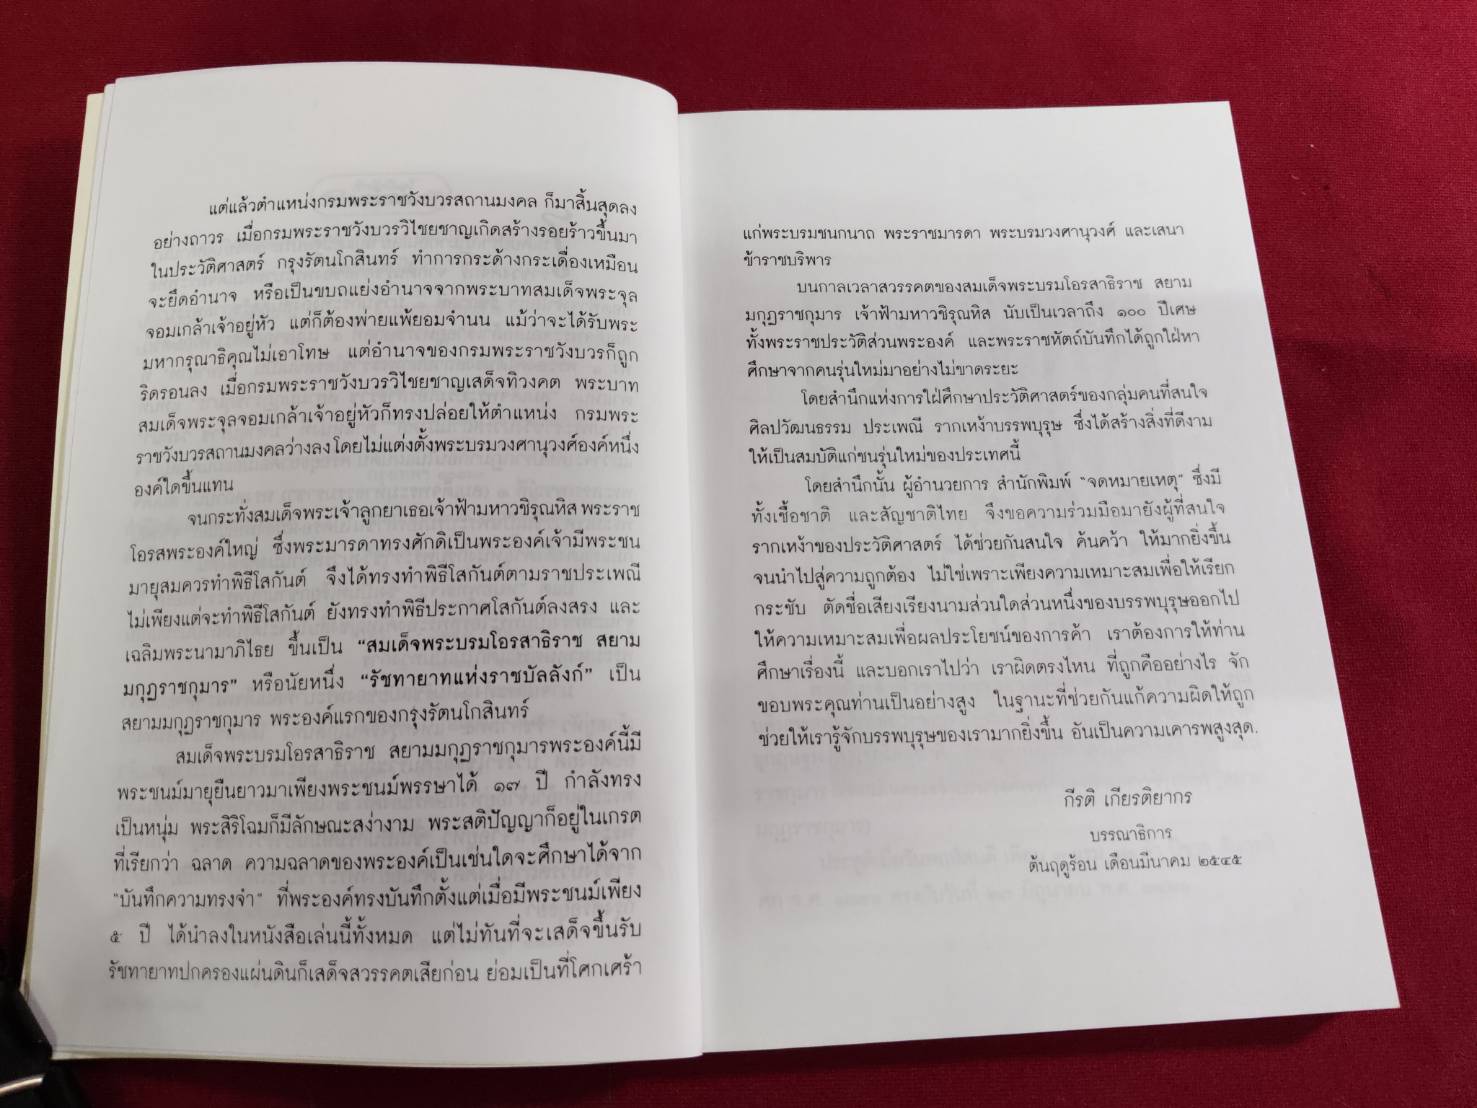 แต่แล้วตำแหน่งกรมพระราชวังบวรสถานมงคล ก็มาสิ้นสุดลง
อย่างถาวร เมื่อกรมพระราชวังบวรวิไชยชาญเกิดสร้างรอยร้าวขึ้นมา
ในประวัติศาสตร์ กรุงรัตนโกสินทร์ ทำการกระด้างกระเดื่องเหมือน
จะยึดอำนาจ หรือเป็นขบถแย่งอำนาจจากพระบาทสมเด็จพระจุล
จอมเกล้าเจ้าอยู่หัว แต่ก็ต้องพ่ายแพ้ยอมจำนน แม้ว่าจะได้รับพระ
มหากรุณาธิคุณไม่เอาโทษ แต่อำนาจของกรมพระราชวังบวรก็ถูก
ริดรอนลง เมื่อกรมพระราชวังบวรวิไชยชาญเสด็จทิวงคต พระบาท
สมเด็จพระจุลจอมเกล้าเจ้าอยู่หัวก็ทรงปล่อยให้ตำแหน่ง กรมพระ
ราชวังบวรสถานมงคลว่างลงโดยไม่แต่งตั้งพระบรมวงศานุวงศ์องค์หนึ่ง
องค์ใดขึ้นแทน
จนกระทั่งสมเด็จพระเจ้าลูกยาเธอเจ้าฟ้ามหาวชิรุณหิส พระราช
โอรสพระองค์ใหญ่ ซึ่งพระมารดาทรงศักดิเป็นพระองค์เจ้ามีพระชน
มายุสมควรทำพิธีโสกันต์ จึงได้ทรงทำพิธีโสกันต์ตามราชประเพณี
ไม่เพียงแต่จะทำพิธีโสกันต์ ยังทรงทำพิธีประกาศโสกันต์ลงสรง และ
เฉลิมพระนามาภิไธย ขึ้นเป็น "สมเด็จพระบรมโอรสาธิราช สยาม
มกุฎราชกุมาร" หรือนัยหนึ่ง "รัชทายาทแห่งราชบัลลังก์" เป็น
สยามมกุฎราชกุมาร พระองค์แรกของกรุงรัตนโกสินทร์
สมเด็จพระบรมโอรสาธิราช สยามมกุฎราชกุมารพระองค์นี้มี
พระชนม์มายุยืนยาวมาเพียงพระชนม์พรรษาได้ ๑๗ ปี กำลังทรง
เป็นหนุ่ม พระสิริโฉมก็มีลักษณะสง่างาม พระสติปัญญาก็อยู่ในเกรต
ที่เรียกว่า ฉลาด ความฉลาดของพระองค์เป็นเช่นใดจะศึกษาได้จาก
"บันทึกความทรงจำ" ที่พระองค์ทรงบันทึกตั้งแต่เมื่อมีพระชนม์เพียง
๕ ปี ได้นำลงในหนังสือเล่นนี้ทั้งหมด แต่ไม่ทันที่จะเสด็จขึ้นรับ
รัชทายาทปกครองแผ่นดินก็เสด็จสวรรคตเสียก่อน ย่อมเป็นที่โศกเศร้า
แก่พระบรมชนกนาถ พระราชมารดา พระบรมวงศานุวงศ์ และเสนา
ข้าราชบริพาร
บนกาลเวลาสวรรคตของสมเด็จพระบรมโอรสาธิราช สยาม
มกุฎราชกุมาร เจ้าฟ้ามหาวชิรุณหิส นับเป็นเวลาถึง ๑๐๐ ปีเศษ
ทั้งพระราชประวัติส่วนพระองค์ และพระราชหัตถ์บันทึกได้ถูกใฝ่หา
ศึกษาจากคนรุ่นใหม่มาอย่างไม่ขาดระยะ
โดยสำนึกแห่งการใฝ่ศึกษาประวัติศาสตร์ของกลุ่มคนที่สนใจ
ศิลปวัฒนธรรม ประเพณี รากเหง้าบรรพบุรุษ ซึ่งได้สร้างสิ่งที่ดีงาม
ให้เป็นสมบัติแก่ชนรุ่นใหม่ของประเทศนี้
โดยสำนึกนั้น ผู้อำนวยการ สำนักพิมพ์ "จดหมายเหตุ" ซึ่งมี
ทั้งเชื้อชาติ และสัญชาติไทย จึงขอความร่วมมือมายังผู้ที่สนใจ
รากเหง้าของประวัติศาสตร์ ได้ช่วยกันสนใจ ค้นคว้า ให้มากยิ่งขึ้น
จนนำไปสู่ความถูกต้อง ไม่ใช่เพราะเพียงความเหมาะสมเพื่อให้เรียก
กระชับ ตัดชื่อเสียงเรียงนามส่วนใดส่วนหนึ่งของบรรพบุรุษออกไป
ให้ความเหมาะสมเพื่อผลประโยชน์ของการค้า เราต้องการให้ท่าน
ศึกษาเรื่องนี้ และบอกเราไปว่า เราผิดตรงไหน ที่ถูกคืออย่างไร จัก
ขอบพระคุณท่านเป็นอย่างสูง ในฐานะที่ช่วยกันแก้ความผิดให้ถูก
ช่วยให้เรารู้จักบรรพบุรุษของเรามากยิ่งขึ้น อันเป็นความเคารพสูงสุด.
กีรติ เกียรติยากร
บรรณาธิการ
ต้นฤดูร้อน เดือนมีนาคม ๒๕๔๕